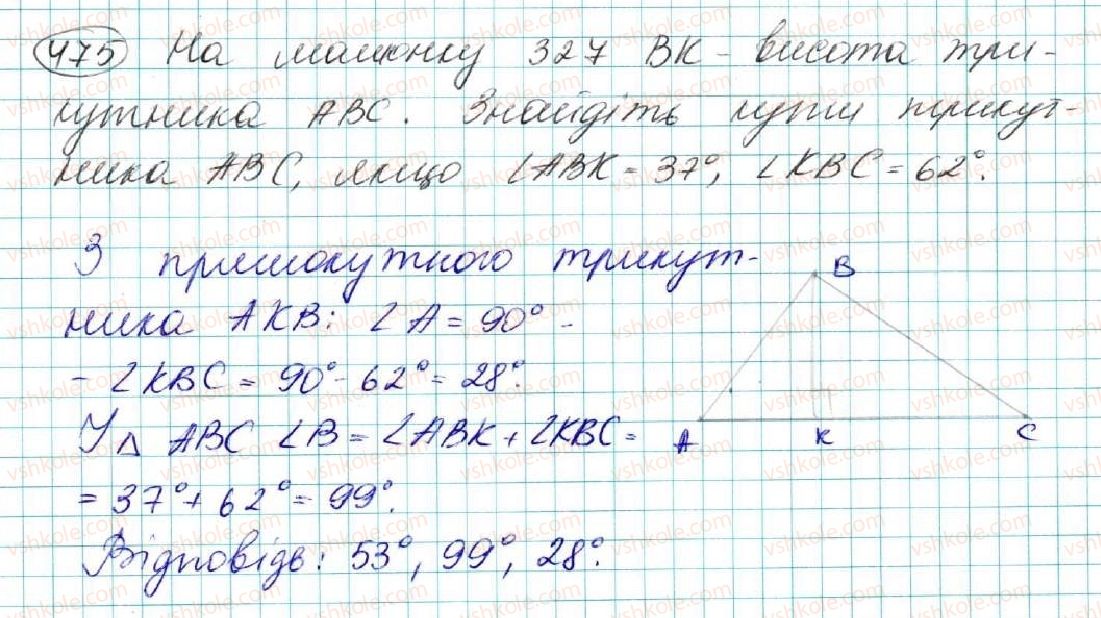 475 На малюнку 327 BK - висота три-
кутника ABC. Знайдіть кути трикут-
ника ABC, якщо ∠ABK = 37°, ∠KBC = 62°.
З прямокутного трикут-
ника AKB: ∠A = 90° -
- ∠KBC = 90° - 62° = 28°.
У △ ABC ∠B = ∠ABK + ∠KBC =
= 37° + 62° = 99°.
Відповідь: 53°, 99°, 28°.
B
A K C
vshkole.com